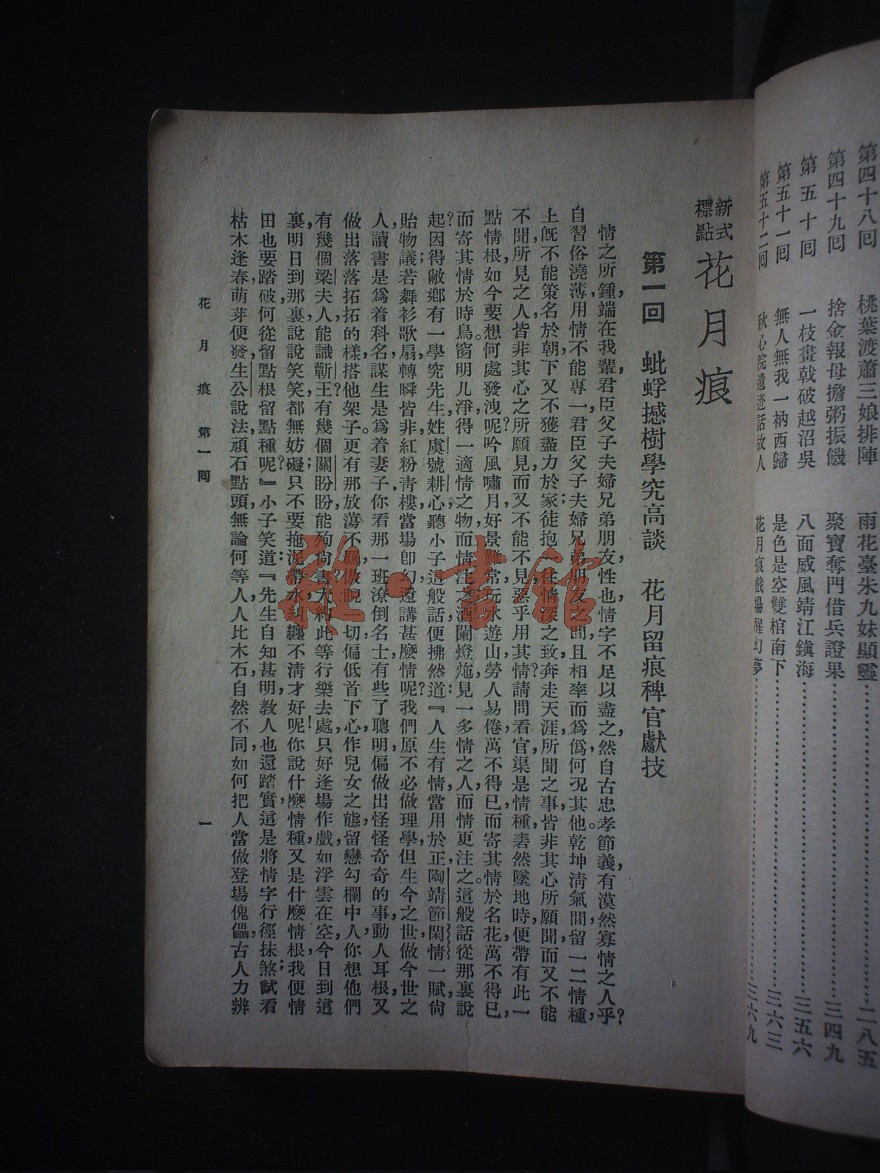 第四十八囘 桃葉渡蕭三娘排陣 雨花臺朱九妹顯靈……二八五
第四十九囘 捨金報母擔粥振饑 聚寶奪門借兵證果……三四九
第五十囘 一枝畫戟破越沼吳 八面威風靖江鎭海……三五六
第五十一囘 無人無我一衲西歸 是色是空雙棺南下……三六三
第五十二囘 秋心院遺迹話故人 花月痕戲場醒幻夢……三六九
新式標點 花月痕
第一囘 蚍蜉撼樹學究高談 花月留痕稗官獻技
情之所鍾，端在我輩，君臣父子夫婦兄弟朋友，性也，情字不足以盡之，然自古忠孝節義，有漠然寡情之人乎？
自習俗澆薄，用情不能專一，君臣父子夫婦兄弟朋友之間，且相率而爲僞，何況其他，乾坤淸氣間留一二情種，
上旣不能策名於朝，下又不獲盡力於家，徒抱一往情深之致，奔走天涯，所聞之事，皆非其心所願聞，而又不能
不聞，所見之人，皆非其心之所願見，而又不能不見，惡乎用其情？請問看官，渠是情種，砉然墜地時，便帶有此一
點情根，如今要想何處發洩呢？吟風嘯月，好景難常，玩水遊山，勞人易倦，萬不得已而寄其情於名花，萬不得已
而寄其情於時鳥，窗明几淨，得一適情之物而情注之，酒闌燈灺，見一多情之人而情更注之。這般話從那裏說
起？因得敝鄕有一學究先生，姓虞，號耕心，聽小子這般話，便拂然道：『人生有情，當用於正，陶靖節閑情一賦，尙
貽物議，若舞衫歌扇，轉瞬皆非，紅粉靑樓，當場卽幻，還講甚麽情呢？我們原不必做理學，但生今之世，做今世之
人，讀書是爲着科名，謀生是爲着妻子，你看那一班潦倒名士，有些了聰明，偏做出怪怪奇奇的事，動人耳根，又
做出落落拓拓的樣，搭他架子，更有那放蕩不羈，傲睨一切，偏低首下心，作兒女之態，留戀勾欄中人，你想他們
有幾個梁夫人，能識蘄王？有幾個關盼盼，能殉尙書？大約此等行樂去處，只好逢場作戲，如浮雲在空，今日到這
裏，明日到那裏，說說笑笑，都無妨礙，只不要拖泥帶水，糾纏不淸才好呢！你說什麽情種，又是什麽情根，我便情
田也要踏破，何從留點根，留點種呢？』小子笑道：『先生自知甚明，敎人也還踏實，這是將情字行徑抹煞，試看
枯木逢春，萌芽便發，生公說法，頑石點頭，無論何等人，人比木石自然不同，如何把人當做登場傀儡，古人力辨
花月痕 第一囘
一